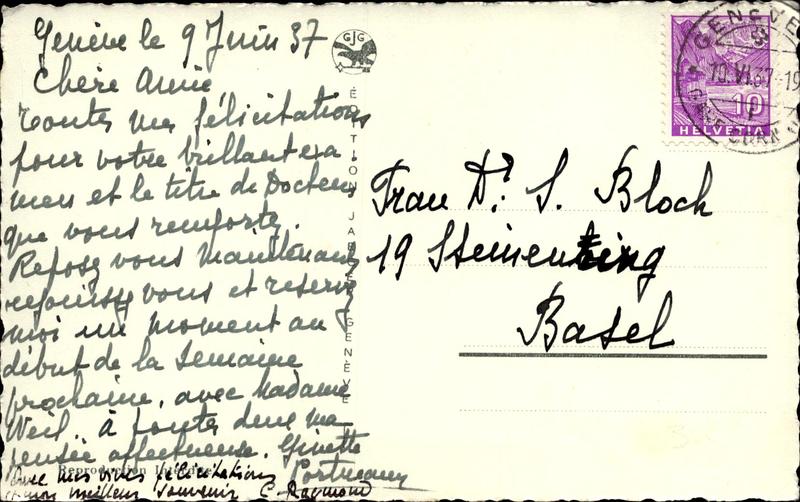 Genève le 9 Juin 37
Chère Annie
Toutes mes félicitations
pour votre brillant exa
men et le titre de Docteur
que vous remportez.
Reposez vous maintenant
rejouissez vous et reservez
moi un moment au
début de la semaine
prochaine, avec Madame
Weil, à toutes deux ma
pensée affectueuse. Ginette
Avec mes vives félicitations
meilleur souvenir C. Raymond
Reproduction
GJG
EDITION JAEGER GENÈVE
GENÈVE
10.VI.37-19
10
HELVETIA
Frau Dr. S. Bloch
19 Steinenring
Basel